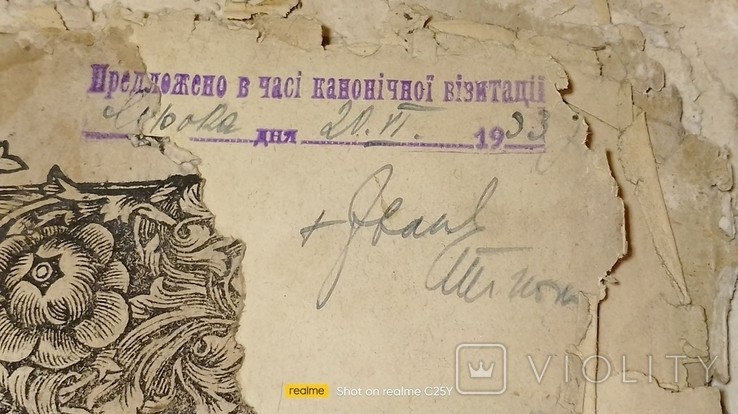 Предложено в часі канонічної візитації
дня 20.VI. 1933
+ Іван
VIOLITY
realme Shot on realme C25Y